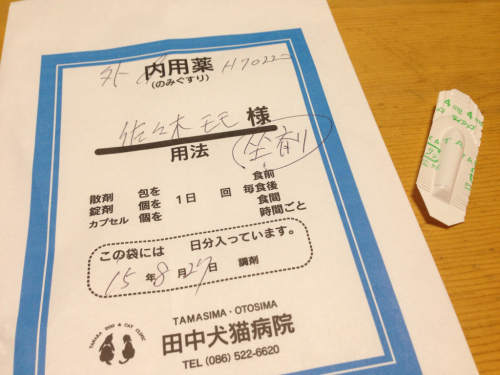 外 内用薬 H7022
(のみぐすり)
佐々木 モモ 様
用法 坐剤
散剤 包を
錠剤 個を
カプセル 個を
1日 回
食前
毎食後
食間
時間ごと
この袋には 日分入っています。
15年8月27日 調剤
TANAKA DOG & CAT CLINIC
TAMASIMA・OTOSIMA
田中犬猫病院
TEL(086)522-6620
4mg 4mg